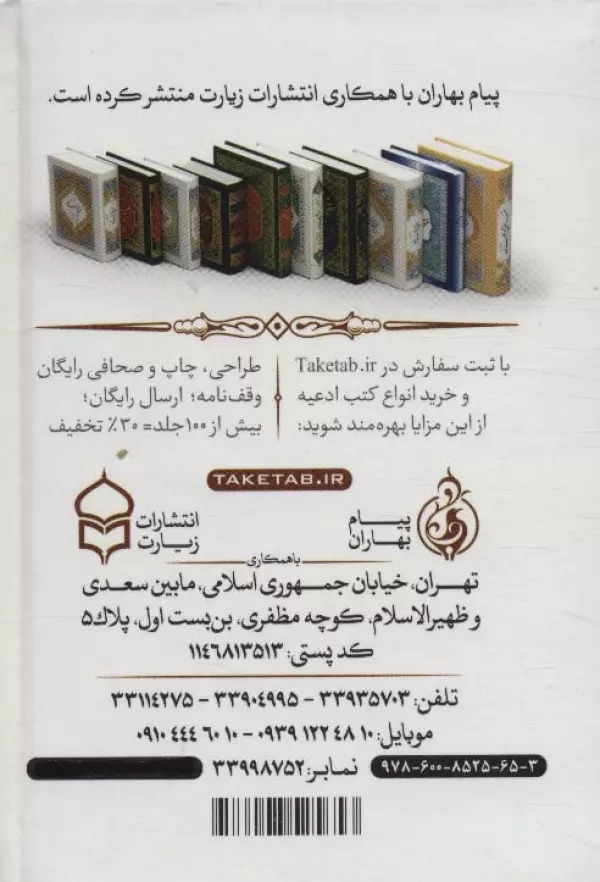 پیام بهاران با همکاری انتشارات زیارت منتشر کرده است.
با ثبت سفارش در Taketab.ir
و خرید انواع کتب ادعیه
از این مزایا بهره‌مند شوید:
طراحی، چاپ و صحافی رایگان
وقف‌نامه؛ ارسال رایگان؛
بیش از ۱۰۰جلد= ۳۰٪ تخفیف
TAKETAB.IR
پیام
بهاران
انتشارات
زیارت
با همکاری
تهران، خیابان جمهوری اسلامی، مابین سعدی
و ظهیرالاسلام، کوچه مظفری، بن‌بست اول، پلاک۵
کد پستی: ۱۱۴۶۸۱۳۵۱۳
تلفن: ۳۳۹۳۵۷۰۳ - ۳۳۹۰۴۹۹۵ - ۳۳۱۱۴۲۷۵
موبایل: ۰۹۳۹ ۱۲۲ ۴۸ ۱۰ - ۰۹۱۰ ۴۴۴ ۶۰ ۱۰
۹۷۸-۶۰۰-۸۵۲۵-۶۵-۳ نمابر: ۳۳۹۹۸۷۵۲